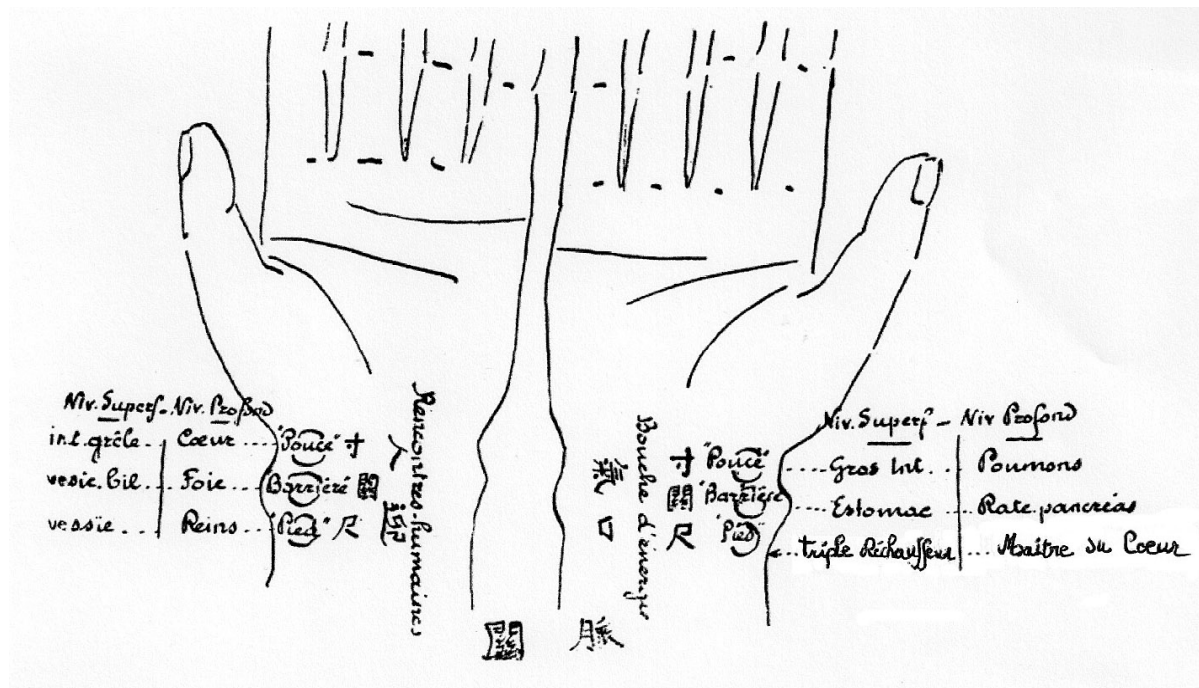 Niv. Superf - Niv. Profond
int. grêle .. Cœur .... "Pouce" 寸
vesic. bil .. Foie ... "Barrière" 關
vessie ... Reins .. "Pied" 尺
人迎
Rencontres-humaines
Bouche d'énergie
氣口
Niv. Superf - Niv Profond
寸 "Pouce" .... Gros Int .. Poumons
關 "Barrière" ... Estomac .. Rate pancréas
尺 "Pied" ... triple Réchauffeur ... Maître du Cœur
關 脈